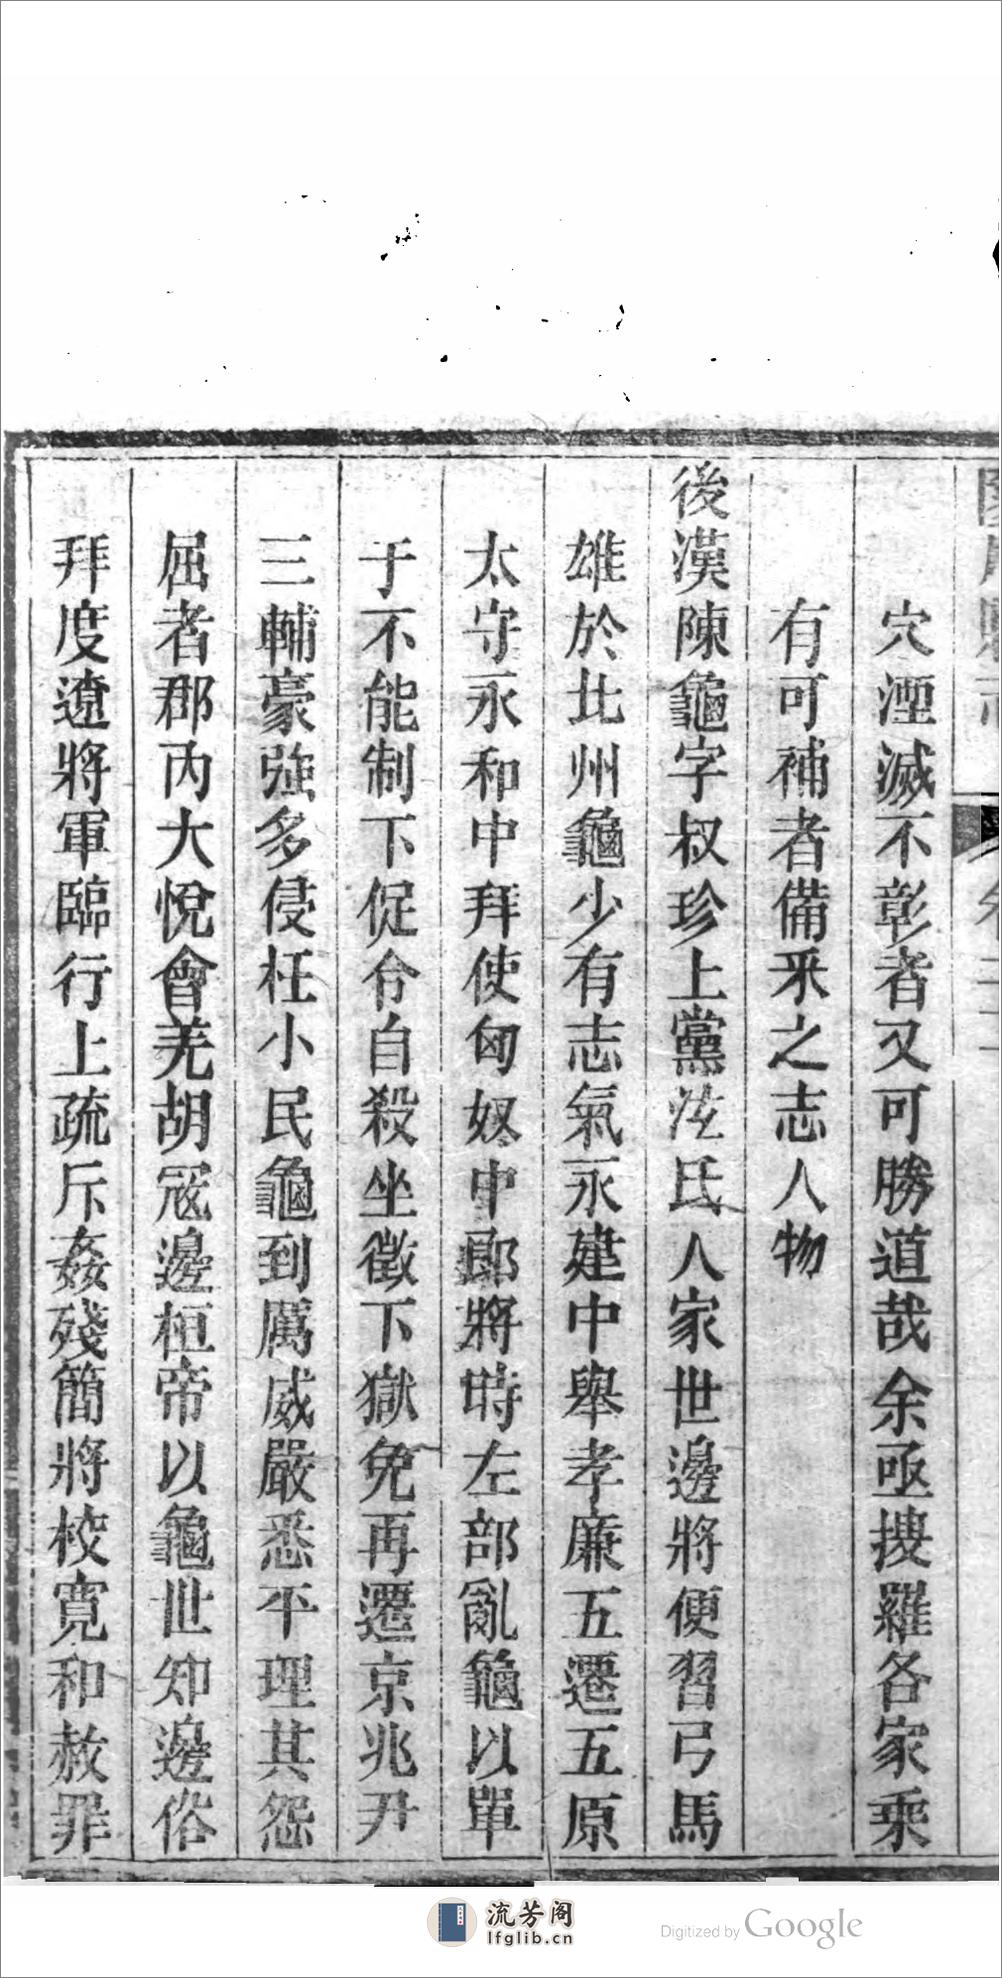 穴湮滅不彰者又可勝道哉余亟摟羅各家乘
有可補者備釆之志人物
後漢陳龜字叔珍上黨泫氏人家世邊將便習弓馬
雄於北州龜少有志氣永建中舉孝廉五遷五原
太守永和中拜使匈奴中郎將時左部亂龜以單
于不能制下促令自殺坐徵下獄免再遷京兆尹
三輔豪強多侵枉小民龜到厲威嚴悉平理其怨
屈者郡內大悅會羌胡寇邊桓帝以龜世知邊俗
拜度遼將軍臨行上疏斥姦殘簡將校寬和赦罪
流芳阁
lfglib.cn
Digitized by Google